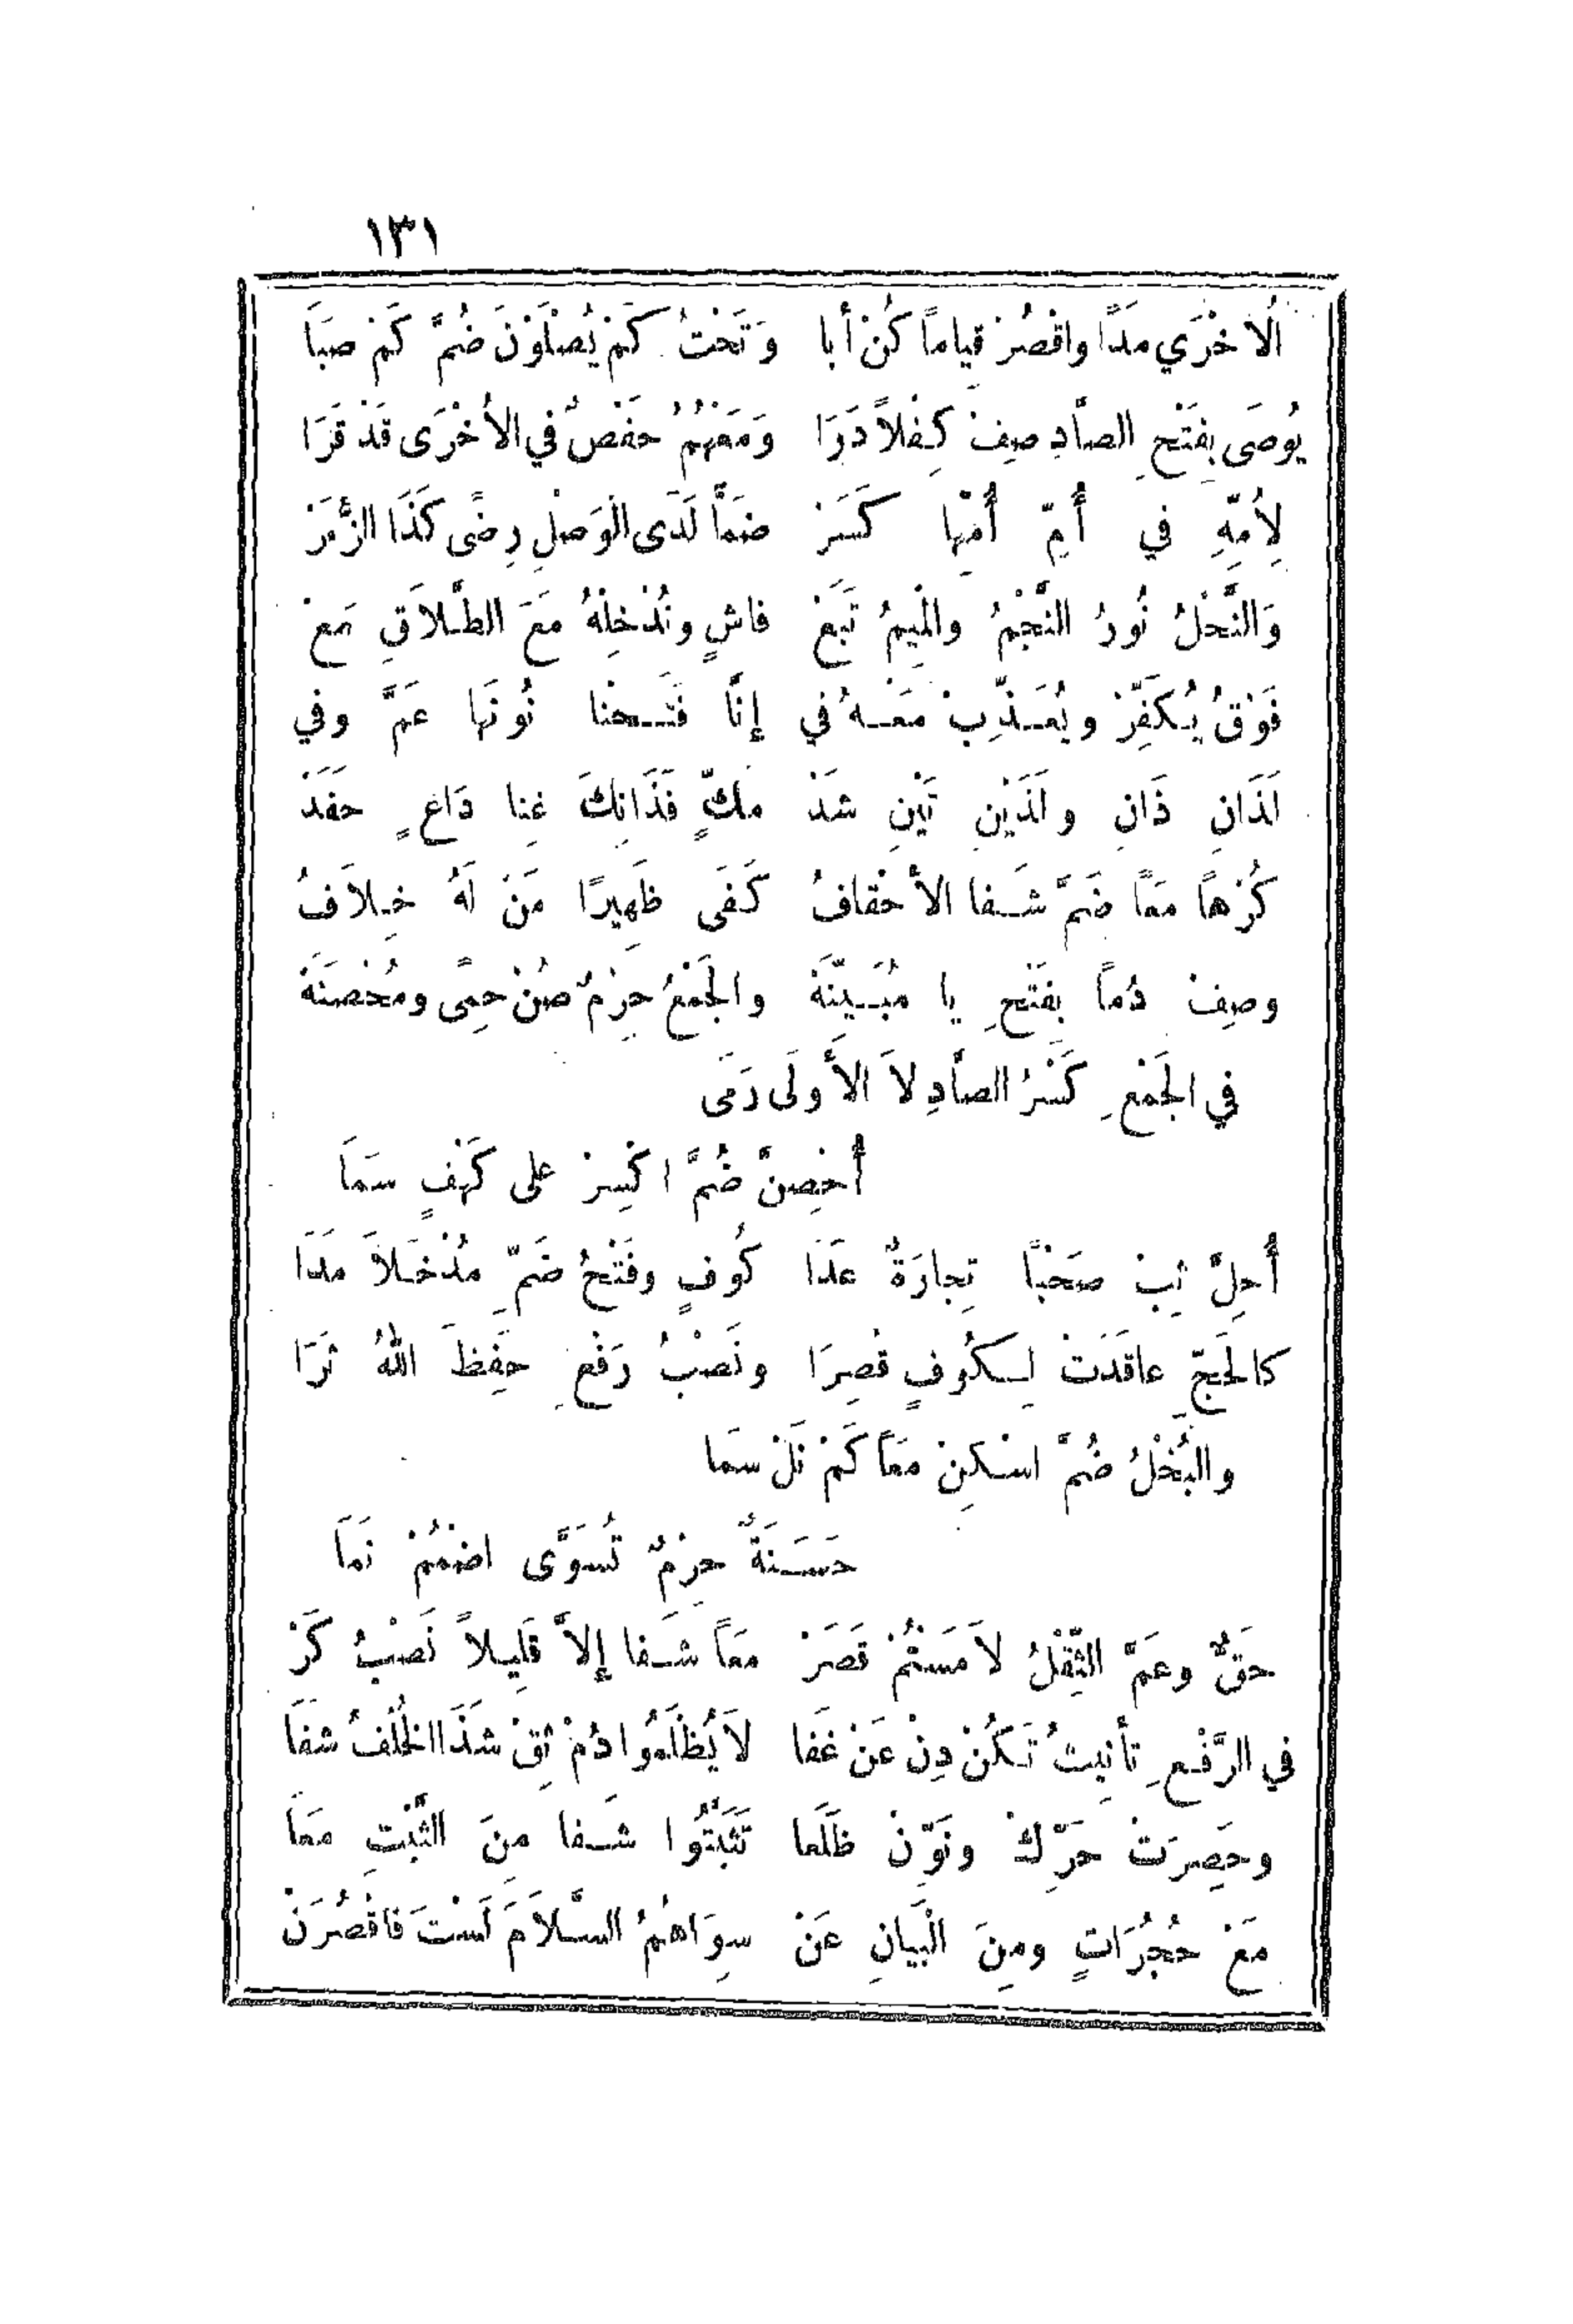 ١٣١
اُلاخْرَي مَدًا واقْصُرْ قياماً كُنْ أبا وَتَحْتُ كَمْ يُصْلَوْنَ ضُمَّ كَمْ صَبَا
يُوصَى بِفَتْحِ الصاَدِ صِفْ كِفْلاً دَرَا وَمَعْهُمُ حَفْصٌ في الأخْرَى قَدْ قَرَا
لِأُمِّهِ في أُمِّ أُمِّها كَسَرْ ضَمًّا لَدَى الْوَصْلِ رِضًى كَذَا الزُّمَرْ
وَالنَّحْلُ نُورُ النَّجْمُ والْمِيمُ تَبَعْ فاشٍ ونُدْخِلْهُ مَعَ الطَّلاَقِ مَعْ
فَوْقُ يُكَفِّرْ ويُعَذِّبْ مَعْهُ في إنَّا فَتَحْنا نُونَها عَمَّ وفي
لَذَانِ ذَانِ ولَذَيْنِ تَيْنِ شَدْ مَكٍّ فَذَانِكَ غِنا دَاعٍ حَفَدْ
كُرْهاً مَعاً ضَمَّ شَفا الأحْقافُ كَفَى ظَهِيرًا مَنْ لَهُ خِلاَفُ
وصِفْ دُماً بِفَتْحِ يا مُبَيِّنَةْ والْجَمْعُ حِرْمٌ صُنْ حِمًى ومُحْصَنَةْ
في الْجَمْعِ كَسْرُ الصاَدِ لاَ الأُولَى رَمَى
أُحْصِنَّ ضُمَّ اكْسِرْ على كَهْفٍ سَمَا
أُحِلَّ ثِبْ صَحْبًا تِجارَةٌ عَدَا كُوفٍ وفَتْحُ ضَمِّ مُدْخَلاَ مَدَا
كالْحَجِّ عاقَدَتْ لِكُوفٍ قُصِرَا ونَصْبُ رَفْعِ حَفِظَ اللهُ ثَرَا
والْبُخْلُ ضُمَّ اسْكِنْ مَعاً كَمْ نَلْ سَما
حَسَنَةٌ حِرْمٌ تُسَوَّى اضْمُمْ نَمَا
حَقٌّ وعَمَّ الثِّقْلُ لاَمَسْتُمْ قَصَرْ مَعاً شَفا إلاَّ قَلِيلاً نَصْبُ كَرْ
في الرَّفْعِ تأنِيثُ تَكُنْ دِنْ عَنْ غَفا لاَ يُظْلَمُوا دُمْ ثِقْ شَذَا الخُلْفُ شَفَا
وحَصِرَتْ حَرِّكْ ونَوِّنْ ظَلَعا تَثَبَّتُوا شَفا مِنَ الثَّبْتِ مَعَا
مَعْ حُجُرَاتٍ ومِنَ الْبَيانِ عَنْ سِوَاهُمُ السَّلاَمَ لَسْتَ فاقْصُرَنْ